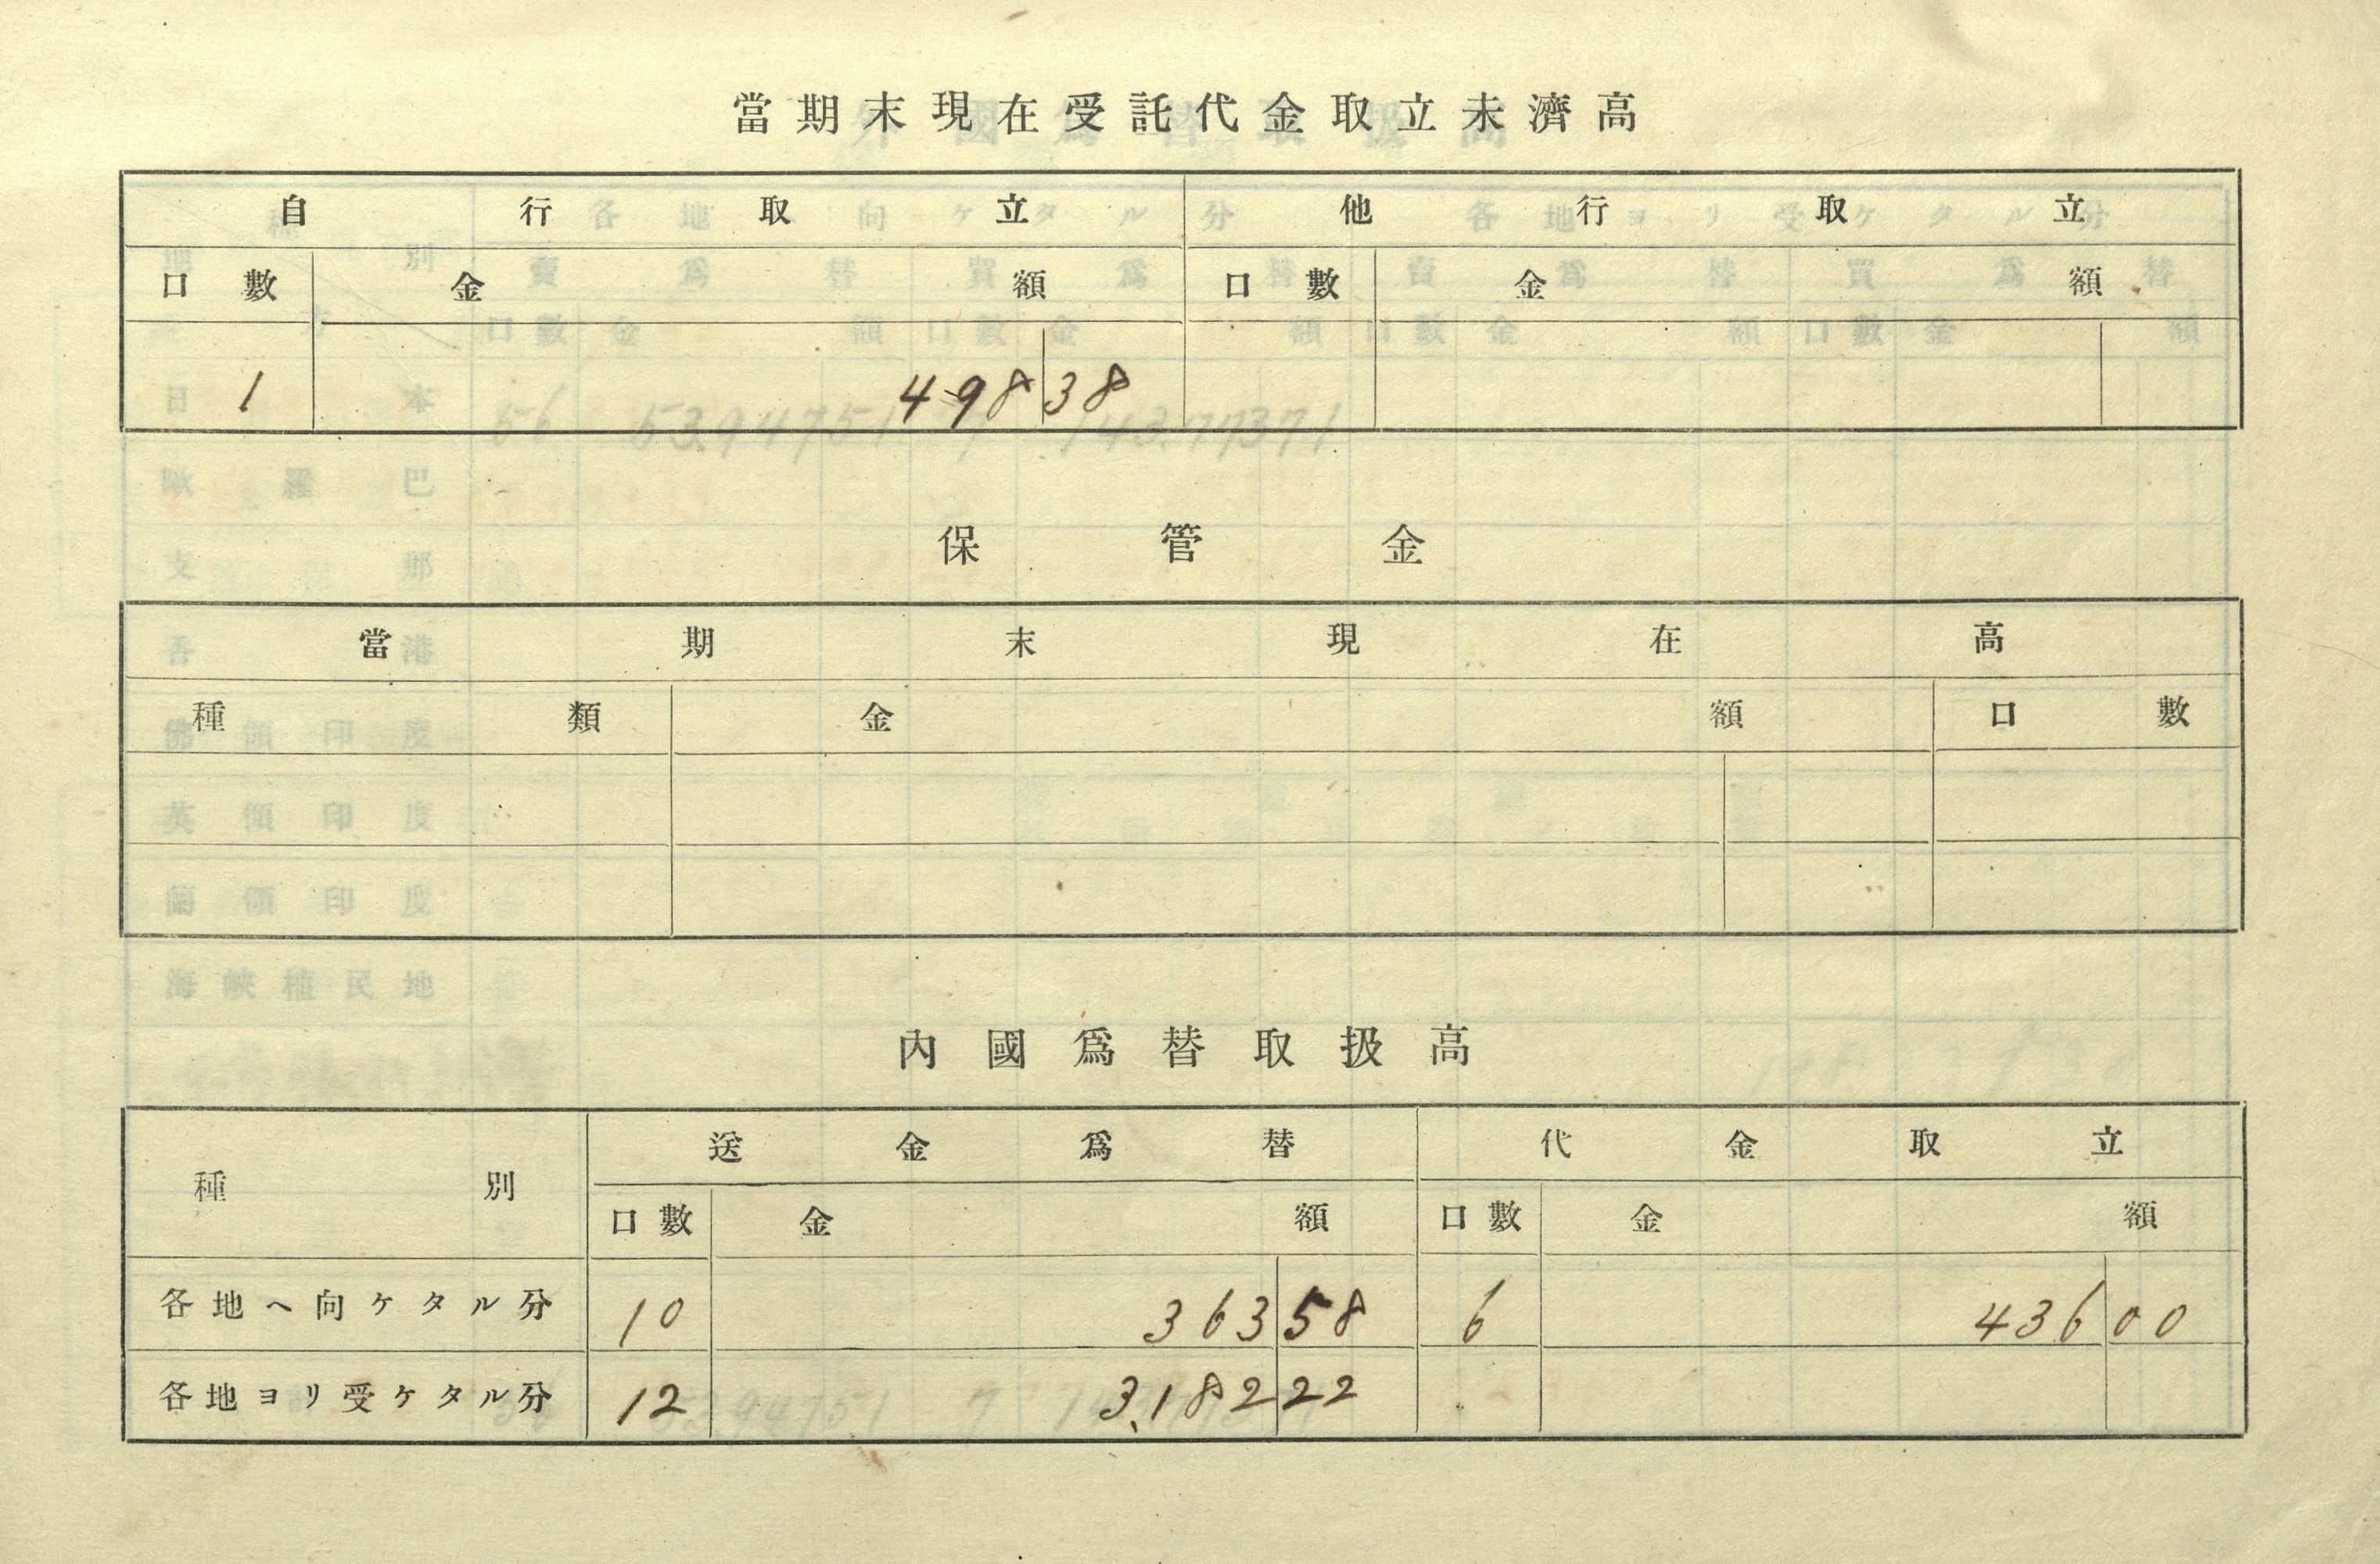 當期末現在受託代金取立未濟高
自行取立 他行取立
口數 金額 口數 金額
1 498 38
保管金
當期末現在高
種類 金額 口數
內國爲替取扱高
種別 送金爲替 代金取立
口數 金額 口數 金額
各地ヘ向ケタル分 10 363 58 6 436 00
各地ヨリ受ケタル分 12 3,182 22